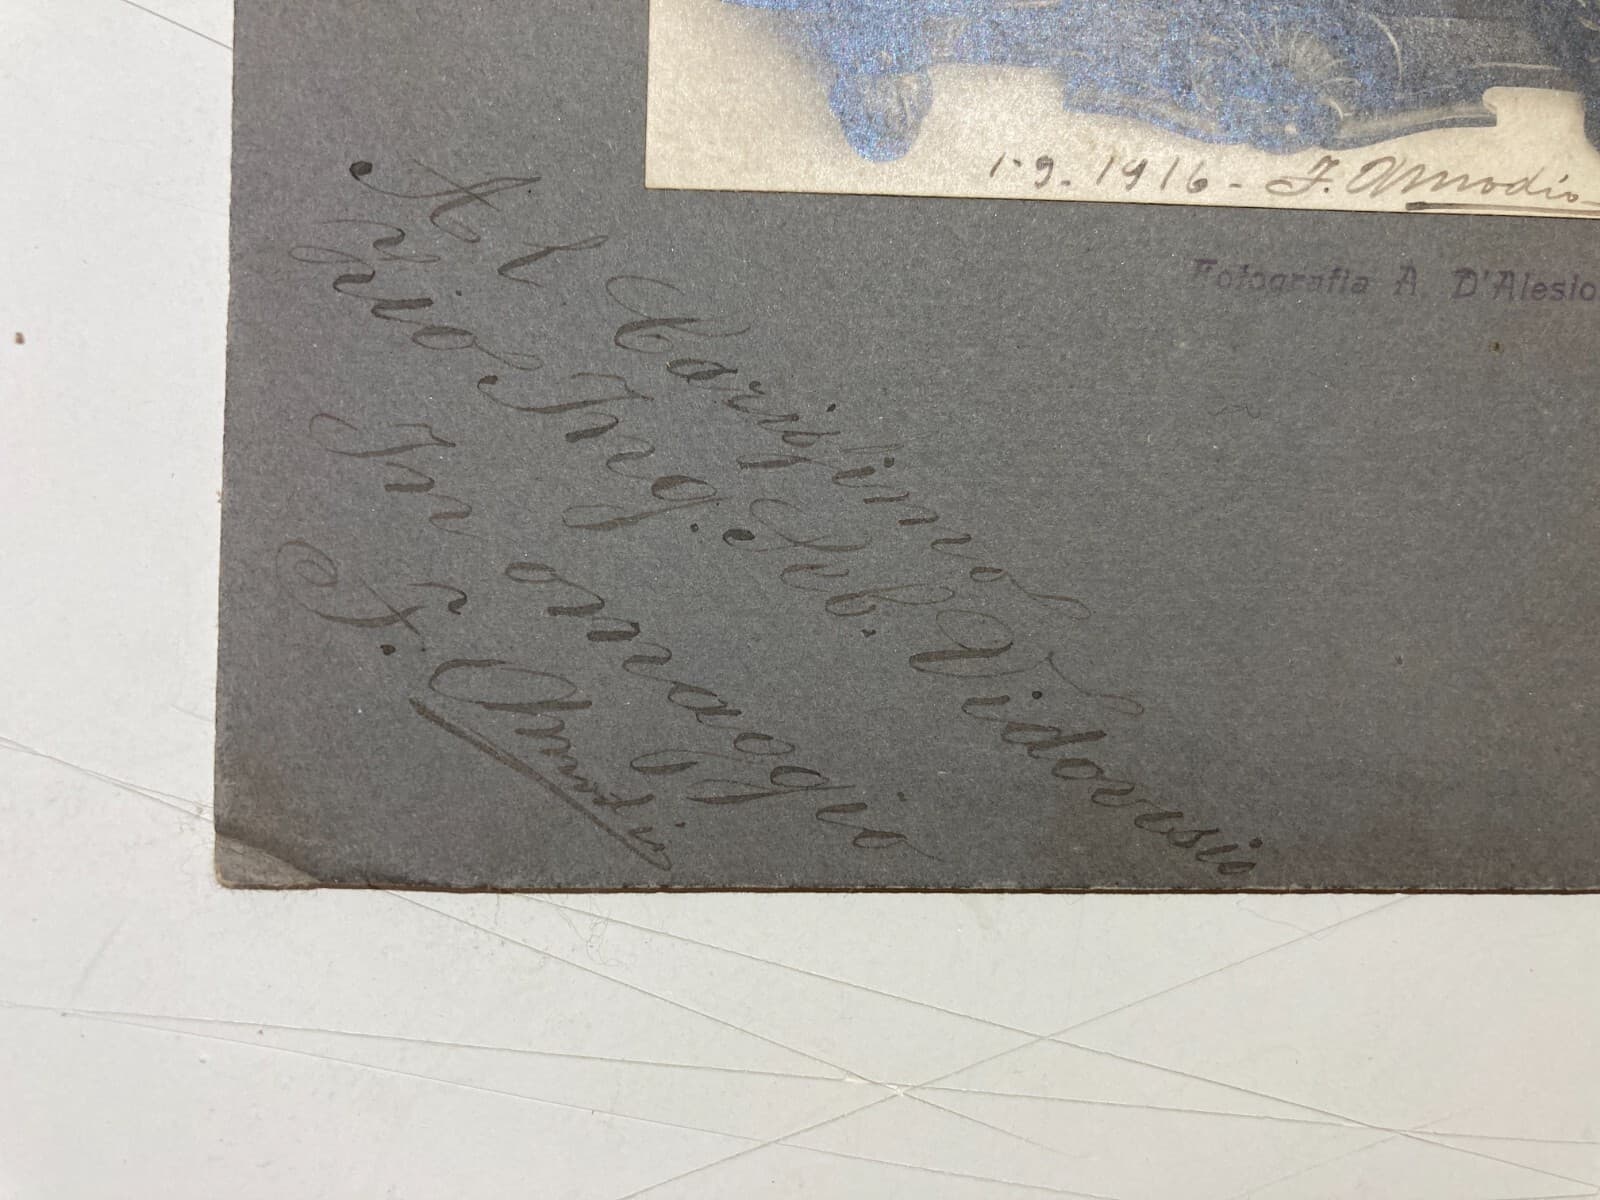 1-9. 1916 - F. Amodio
Fotografia A. D'Alesio
Al Carissimo
Zio Ing. Seb. Vidovisio
In omaggio
F. Amodio